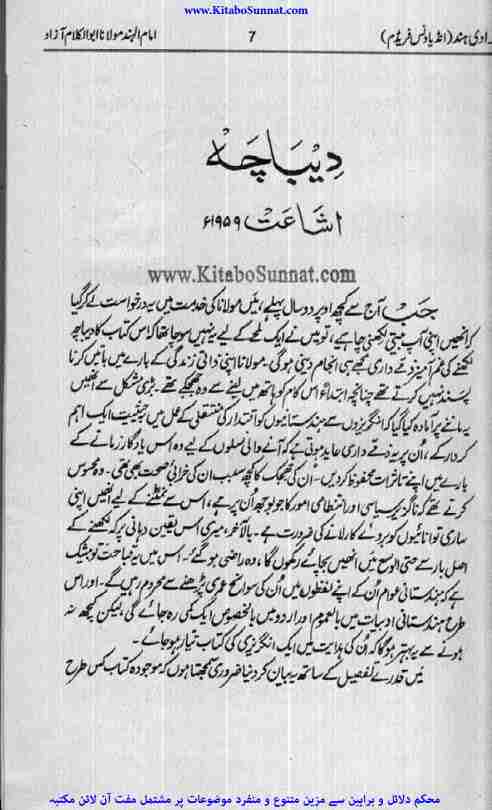 www.KitaboSunnat.com
ادی ہند (انڈیا ونس فریڈم)
7
امام الہند مولانا ابوالکلام آزاد
دیباچہ
اشاعت ۱۹۵۹ء
www.KitaboSunnat.com
جب آج سے کچھ اوپر دو سال پہلے، میں مولانا کی خدمت میں یہ درخواست لے کر گیا
کہ انھیں اپنی آپ بیتی لکھنی چاہیے، تو میں نے ایک لمحے کے لیے یہ نہیں سوچا تھا کہ اس کتاب کا دیباچہ
لکھنے کی غم آمیز ذمے داری مجھے ہی انجام دینی ہوگی۔ مولانا اپنی ذاتی زندگی کے بارے میں باتیں کرنا
پسند نہیں کرتے تھے چنانچہ ابتداً تو اس کام کو ہاتھ میں لینے سے وہ جھجکے تھے۔ بڑی مشکل سے انھیں
یہ ماننے پر آمادہ کیا گیا کہ انگریزوں سے ہندستانیوں کو اقتدار کی منتقلی کے عمل میں بحیثیت ایک اہم
کردار کے، اُن پر یہ ذمے داری عاید ہوتی ہے کہ آنے والی نسلوں کے لیے وہ اس یادگار زمانے کے
بارے میں اپنے تاثرات محفوظ کر دیں۔ اُن کی جھجک کا کچھ سبب ان کی خرابیِ صحت بھی تھی۔ وہ محسوس
کرتے تھے کہ ناگزیر سیاسی اور انتظامی امور کا جو بوجھ اُن پر ہے، اس سے نمٹنے کے لیے انھیں اپنی
ساری توانائیوں کو بروئے کار لانے کی ضرورت ہے۔ بالآخر، میری اس یقین دہانی پر کہ لکھنے کے
اصل بار سے حتی الوسع میں انھیں بچائے رکھوں گا، وہ راضی ہو گئے۔ اس میں یہ قباحت تو بیشک
ہے کہ ہندستانی عوام اُن کے اپنے لفظوں میں اُن کی سوانح عمری پڑھنے سے محروم رہیں گے۔ اور اس
طرح ہندستانی ادبیات میں بالعموم اور اردو میں بالخصوص ایک کمی رہ جائے گی، لیکن کچھ نہ
ہونے سے یہ بہتر ہوگا کہ اُن کی ہدایت میں ایک انگریزی کی کتاب تیار ہو جائے۔
میں قدرے تفصیل کے ساتھ یہ بیان کر دینا ضروری سمجھتا ہوں کہ موجودہ کتاب کس طرح
محکم دلائل و براہین سے مزین متنوع و منفرد موضوعات پر مشتمل مفت آن لائن مکتبہ